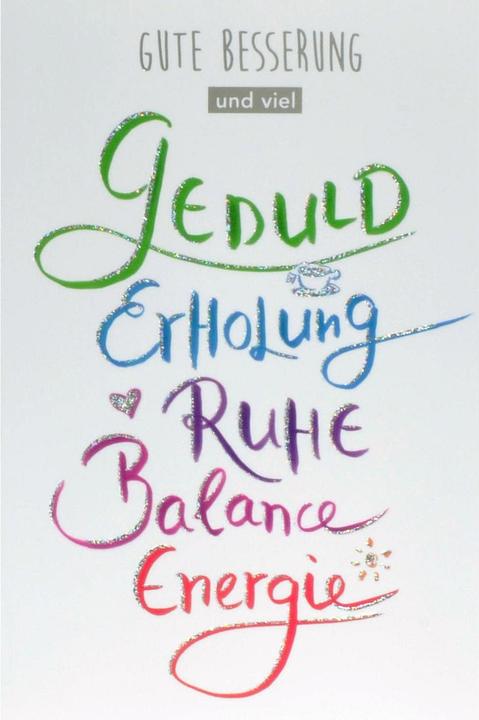 GUTE BESSERUNG
und viel
GEDULD
ErHoLung
RUHE
Balance
Energie